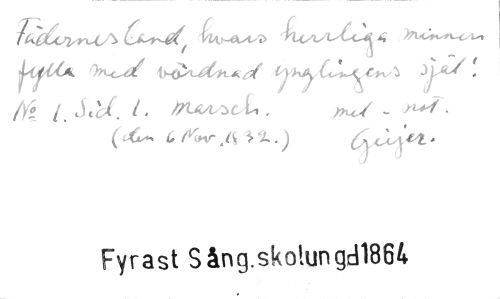 Fädernesland, hvars herrliga minnen
fylla med vördnad ynglingens själ!
No 1. Sid. 1. marsch. mel - not.
(den 6 Nov. 1832.) Geijer.
Fyrast Sång.skolungd1864